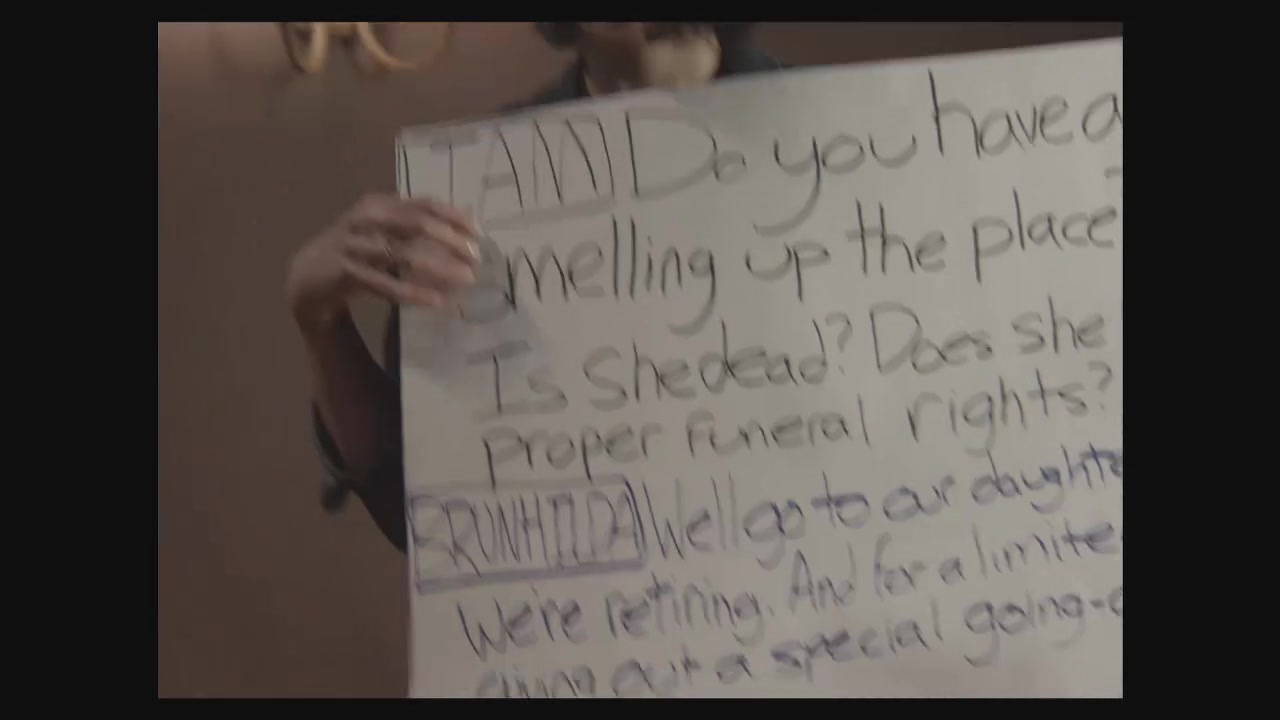 Do you have a
smelling up the place?
Is she dead? Does she
proper funeral rights?
BRUNHILDA Well go to our daughte
We're retiring. And for a limite
out a special going-o